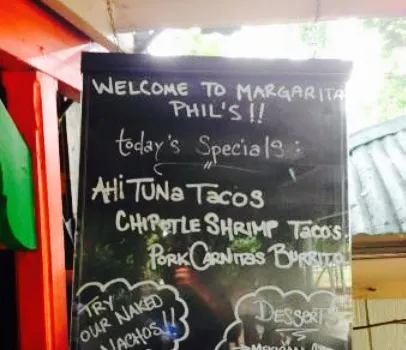 WELCOME TO MARGARITA
PHIL'S!!
today's Specials:
AHI TUNA TACOS
CHIPOTLE SHRIMP TACO'S
PORK CARNITAS BURRITO
TRY
OUR NAKED
NACHOS!!
DESSERTS